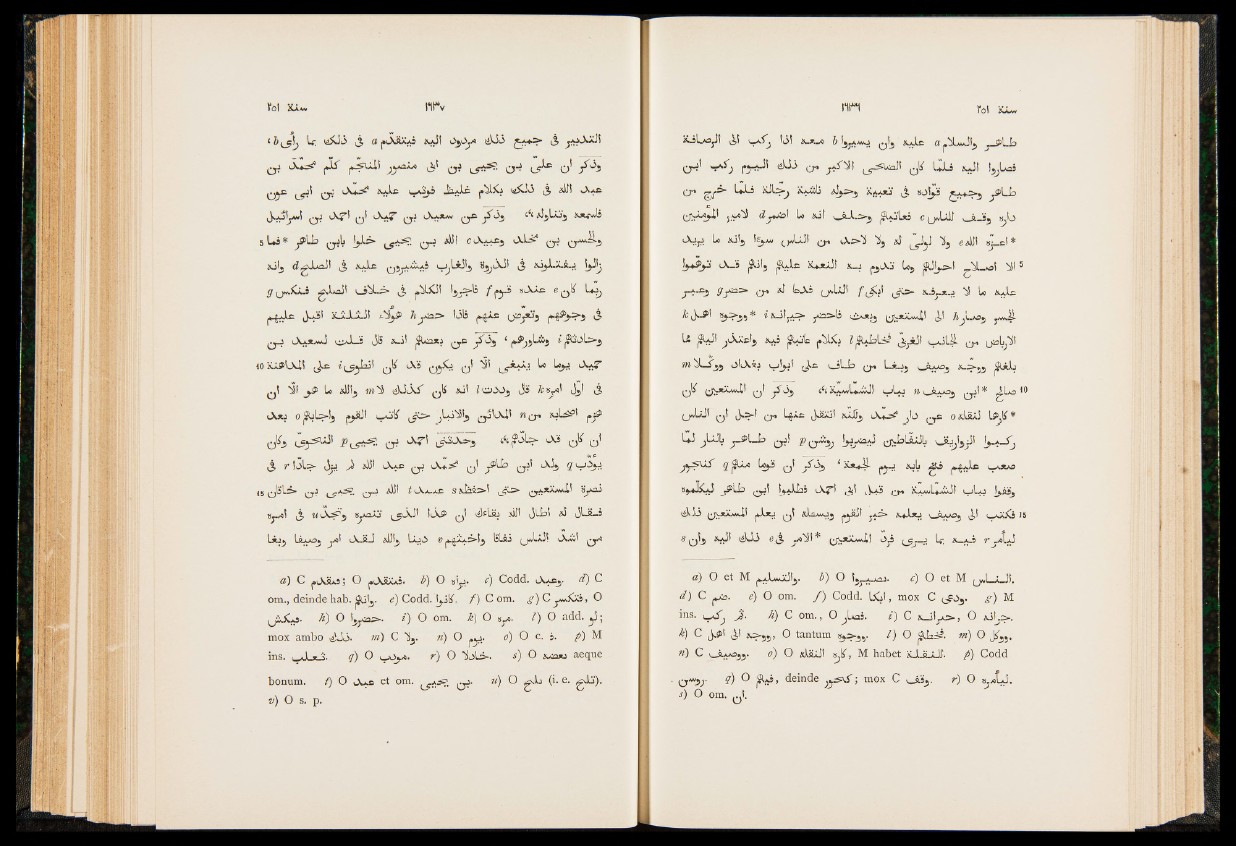 سنة ٢٥١ ١٦٣٦
طاهر والسلام a عليه وان يسيروا b معه اذا ركب الى الرصافة
فصاروا اليه فلما كان الضحى الاكبر من ذلك اليوم ركب ابن
طاهر وجميع قواده فى تعبية وحوله ناشبة رجالة فلما خرج من
داره وقف للناس c فعاتبهم وحلف انه ما اضمر d لامير المؤمنين
*اعزه الله e ولا لولى له ولا لاحد من الناس سوءا وانه ما يريد
5 الا اصلاح احوالهم وما تدوم به النعمة عليهم وانهم قد توهموا
عليه ما لا يعرفه حتى ابكى f الناس فدعا له من حضر g وعبر
الجسر وصار h الى المستعين وبعث فاحضر جيرانه i *ووجوه اهل k
الارباض من الجانب الغربى فخاطبهم l بكلام عاتبهم فيه واعتذر اليهم لما
بلغهم ووجه وصيف وبغا من طاف على ابواب بغداد ووكلا m
10 صالح *ابن وصيف n بباب الشماسية ۞ وذكر ان المستعين كان
*كارها لنقله o عن دار محمد ولكنه انتقل عنها من اجل ان الناس
ركبوا الزواريق بالنفاطين ليضربوا روشن p ابن طاهر بالنار لما
صعب عليهم فتح بابه يوم الجمعة، وذكر ان قوما منهم q كنجور
وقفوا بباب الشماسية من قبل ابى احمد فطلبوا ابن طاهر ليكلموه
15 فكتب الى وصيف يعلمه خبر القوم ويسئله ان يعلم المستعين ذلك
ليأمر r فيه بما يرى فرد المستعين *الامر فى e ذلك اليه وان s
a) O et M والتسليم. b) O يصيروا. c) O et M الناس.
d) C ضم. e) O om. f) Codd. ابكا, mox C ودعى. g) M
ins. ثم ركب. h) C om., O فصار. i) C حرانه, O جرانه.
k) C ووجه الى اهل, O tantum ووجوه. l) O فخطبهم. m) O ووكل.
n) C ووصيف. o) O كاره النقله, M habet النقلة. p) Codd
روسن. q) O فيهم, deinde كنجور; mox C وقف. r) O ليأمره.
s) O om. ان.
سنة ٢٥١ ١٦٣٧
التدبير فى جميع ذلك مردود اليه فيتقدم a فى ذلك بما رأى b،
وذكر ان على بن يحيى بن ابى منصور المنجم كلم محمد بن
عبد الله فى ذلك بكلام غليظ فوثب عليه محمد بن ابى عون
فاسمعه وتناوله ۞ وذكر عن سعيد بن حميد ان احمد بن اسرائيل
5 والحسن بن مخلد وعبيد c الله بن يحيى خلوا بابن طاهر *فما
زالوا يفتلونه فى الذروة والغارب ويشيرون عليه فى الصلح d وانه
ربما كان e عنده قوم f فاجروا الكلام فى خلاف الصلح فينكس g
فى وجوههم ويعرض عنهم فاذا حضر h هولاء الثلثة اقبل عليهم
وحادثهم i وشاورهم، وذكر عن بعضهم انه قال قلت لسعيد بن
10 حميد يوما ما ينبغى الا ان يكون قد كان انطوى i على المداهنة
فى اول امره k قال وددت l انه كان كذلك لا m والله ما هو الا ان
هزم اصحابه من n المدائن والانبار حتى كاتب القوم واجابهم o بعد
ان كان قد جادهم ۞ وحدثنى احمد بن يحيى p النحوى وكان
يؤدب q ولد ابن طاهر ان محمد بن عبد الله لم يزل جادا r فى
15 نصرة المستعين حتى احفظه s عبيد t الله بن يحيى بن خاقان
فقال له اطال الله بقاءك ان هذا الذى تنصره وتجد u فى امره
من اشد الناس نفاقا واخبثهم v دينا والله لقد امر وصيفا وبغا
a) C فيتقدم; O فتقدم. b) O يراه. c) Codd. وعبد. d) C
om., deinde hab. وانهم. e) Codd. كانوا. f) C om. g) C فتكسر, O
فيكش. h) O حضروا. i) O om. k) O مره. l) O add. لو;
mox ambo ذلك. m) C ولا. n) O يوم. o) O c. ف. p) M
ins. ثعلب. q) O مودب. r) O جادلا. s) O بعضه aeque
bonum. t) O عبد et om. بن يحيى. u) O بلج (i. e. تلج).
v) O s. p.